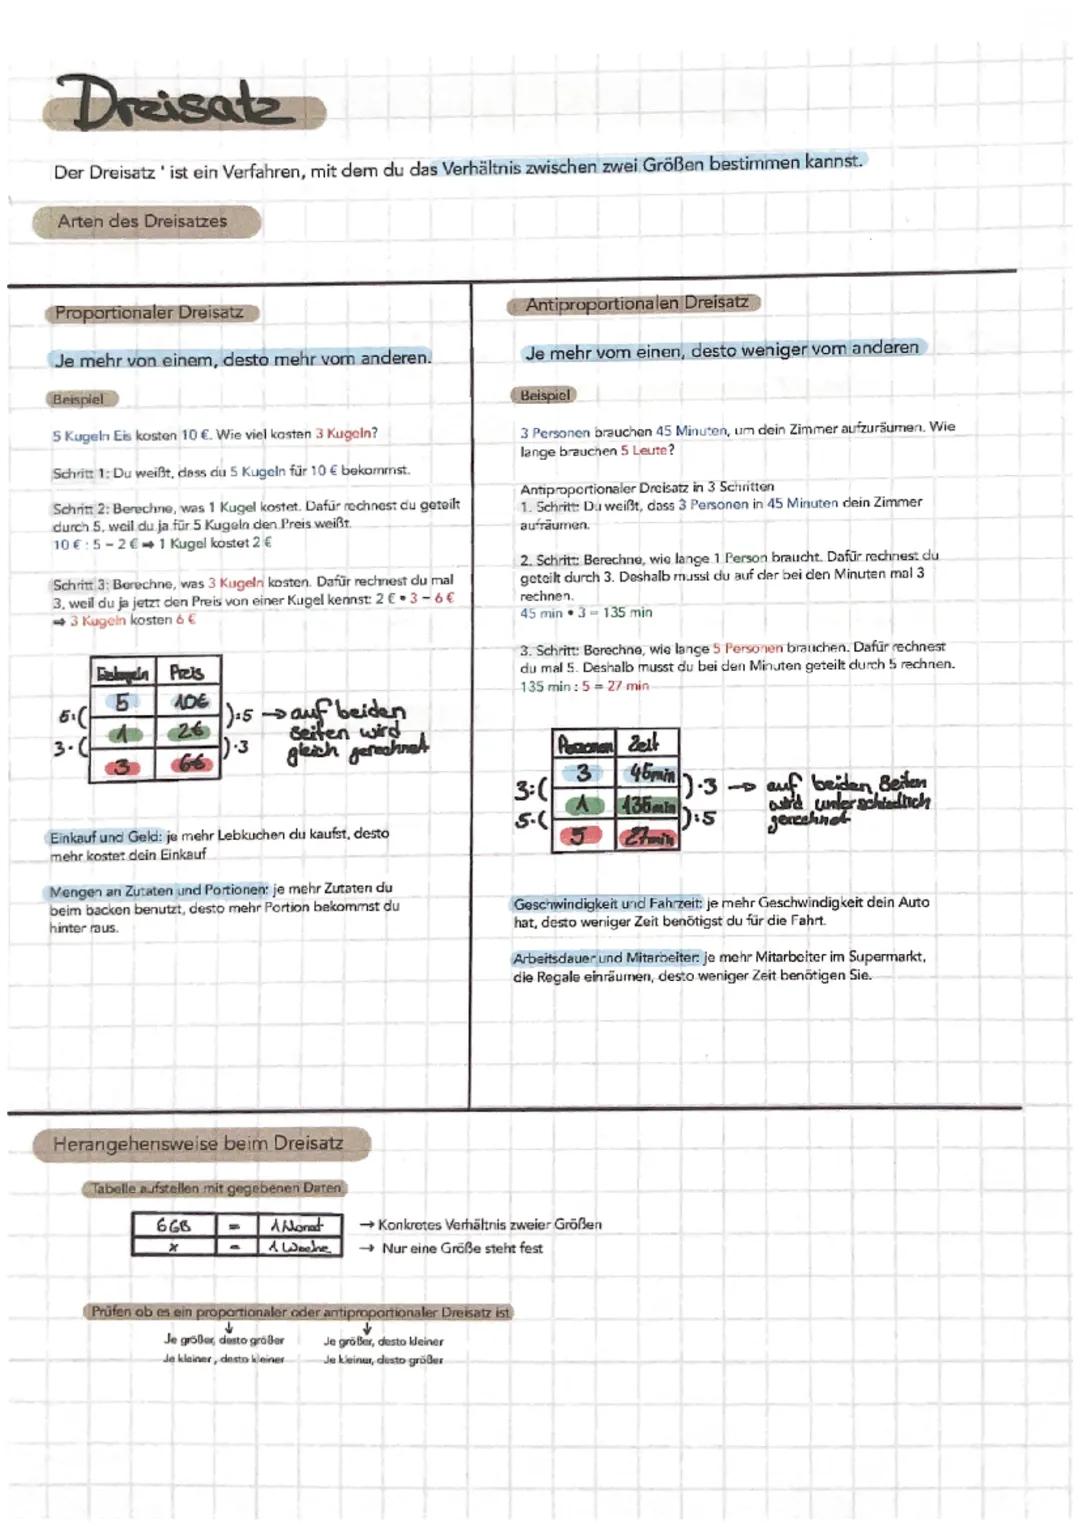 Dreisatz
Der Dreisatz ' ist ein Verfahren, mit dem du das Verhältnis zwischen zwei Größen bestimmen kannst.
Arten des Dreisatzes
Proportionaler Dreisatz
Je mehr von einem, desto mehr vom anderen.
Beispiel
5 Kugeln Eis kosten 10 €. Wie viel kosten 3 Kugeln?
Schritt 1: Du weißt, dass du 5 Kugeln für 10 € bekommst.
Schritt 2: Berechne, was 1 Kugel kostet. Dafür rechnest du geteilt
durch 5, weil du ja für 5 Kugeln den Preis weißt.
10 € : 5 = 2 € ➡ 1 Kugel kostet 2 €
Schritt 3: Berechne, was 3 Kugeln kosten. Dafür rechnest du mal
3, weil du ja jetzt den Preis von einer Kugel kennst: 2 € • 3 = 6 €
➡ 3 Kugeln kosten 6 €
Eiskugeln Preis
5 10€
1 2€
3 6€
5:( ):5 → auf beiden
Seiten wird
3·( )·3 gleich gerechnet
Einkauf und Geld: je mehr Lebkuchen du kaufst, desto
mehr kostet dein Einkauf
Mengen an Zutaten und Portionen: je mehr Zutaten du
beim backen benutzt, desto mehr Portion bekommst du
hinter raus.
Antiproportionalen Dreisatz
Je mehr vom einen, desto weniger vom anderen
Beispiel
3 Personen brauchen 45 Minuten, um dein Zimmer aufzuräumen. Wie
lange brauchen 5 Leute?
Antiproportionaler Dreisatz in 3 Schritten
1. Schritt: Du weißt, dass 3 Personen in 45 Minuten dein Zimmer
aufräumen.
2. Schritt: Berechne, wie lange 1 Person braucht. Dafür rechnest du
geteilt durch 3. Deshalb musst du auf der bei den Minuten mal 3
rechnen.
45 min • 3 = 135 min
3. Schritt: Berechne, wie lange 5 Personen brauchen. Dafür rechnest
du mal 5. Deshalb musst du bei den Minuten geteilt durch 5 rechnen.
135 min : 5 = 27 min
Personen Zeit
3 45min
1 135min
5 27min
3:( )·3 → auf beiden Seiten
wird unterschiedlich
5·( ):5 gerechnet
Geschwindigkeit und Fahrzeit: je mehr Geschwindigkeit dein Auto
hat, desto weniger Zeit benötigst du für die Fahrt.
Arbeitsdauer und Mitarbeiter: je mehr Mitarbeiter im Supermarkt,
die Regale einräumen, desto weniger Zeit benötigen Sie.
Herangehensweise beim Dreisatz
Tabelle aufstellen mit gegebenen Daten
6GB = 1 Monat → Konkretes Verhältnis zweier Größen
x = 1 Woche → Nur eine Größe steht fest
Prüfen ob es ein proportionaler oder antiproportionaler Dreisatz ist
↓ ↓
Je größer, desto größer Je größer, desto kleiner
Je kleiner, desto kleiner Je kleiner, desto größer